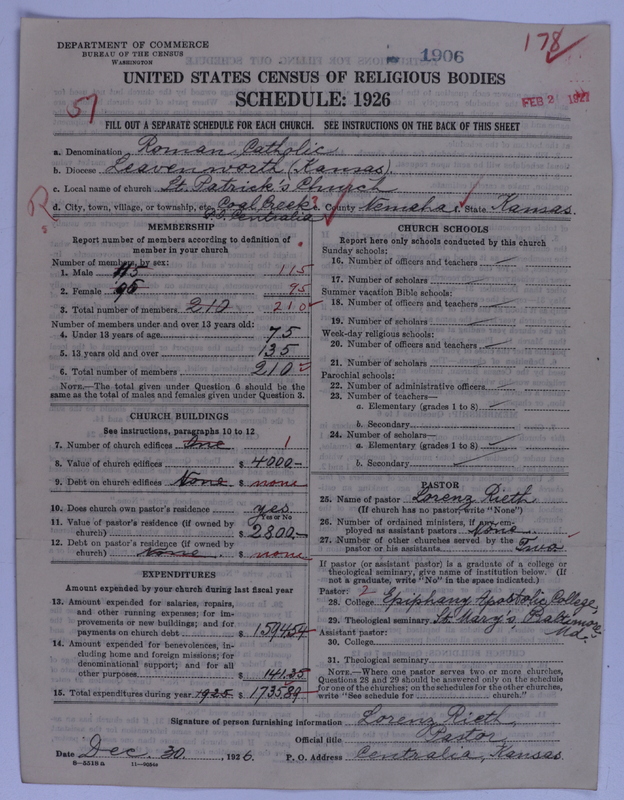 DEPARTMENT OF COMMERCE
BUREAU OF THE CENSUS
WASHINGTON
1906
178
UNITED STATES CENSUS OF RELIGIOUS BODIES
SCHEDULE: 1926
57
FEB 2 1927
FILL OUT A SEPARATE SCHEDULE FOR EACH CHURCH. SEE INSTRUCTIONS ON THE BACK OF THIS SHEET
a. Denomination Roman Catholic
b. Diocese Leavenworth (Kansas)
c. Local name of church St. Patrick's Church
d. City, town, village, or township, etc. Coal Creek? e. County Nemaha f. State Kansas.
P.O. Centralia
MEMBERSHIP
Report number of members according to definition of
member in your church
Number of members, by sex:
1. Male 115 115
2. Female 95 95
3. Total number of members 210 210
Number of members under and over 13 years old:
4. Under 13 years of age 75
5. 13 years old and over 135
6. Total number of members 210
NOTE.—The total given under Question 6 should be the
same as the total of males and females given under Question 3.
CHURCH BUILDINGS
See instructions, paragraphs 10 to 12
7. Number of church edifices One 1
8. Value of church edifices $ 4000.—
9. Debt on church edifices None $ none
10. Does church own pastor's residence yes
Yes or No
11. Value of pastor's residence (if owned by
church) $ 2800.—
12. Debt on pastor's residence (if owned by
church) None $ none
EXPENDITURES
Amount expended by your church during last fiscal year
13. Amount expended for salaries, repairs,
and other running expenses; for im-
provements or new buildings; and for
payments on church debt $ 1594.54
14. Amount expended for benevolences, in-
cluding home and foreign missions; for
denominational support; and for all
other purposes $ 141.35
15. Total expenditures during year 1925 $ 1735.89
CHURCH SCHOOLS
Report here only schools conducted by this church
Sunday schools:
16. Number of officers and teachers
17. Number of scholars
Summer vacation Bible schools:
18. Number of officers and teachers
19. Number of scholars
Week-day religious schools:
20. Number of officers and teachers
21. Number of scholars
Parochial schools:
22. Number of administrative officers
23. Number of teachers—
a. Elementary (grades 1 to 8)
b. Secondary
24. Number of scholars—
a. Elementary (grades 1 to 8)
b. Secondary
PASTOR
25. Name of pastor Lorenz Rieth
(If church has no pastor, write "None")
26. Number of ordained ministers, if any, em-
ployed as assistant pastors None
27. Number of other churches served by the
pastor or his assistants Two
If pastor (or assistant pastor) is a graduate of a college or
theological seminary, give name of institution below. (If
not a graduate, write "No" in the space indicated.)
Pastor: 2
28. College Epiphany Apostolic College,
29. Theological seminary St. Mary's, Baltimore
Md.
Assistant pastor:
30. College
31. Theological seminary
NOTE.—Where one pastor serves two or more churches,
Questions 28 and 29 should be answered only on the schedule
for one of the churches; on the schedules for the other churches,
write "See schedule for church."
Signature of person furnishing information Lorenz Rieth
Official title Pastor
Date Dec. 30, 1926. P. O. Address Centralia, Kansas.
6—5518a